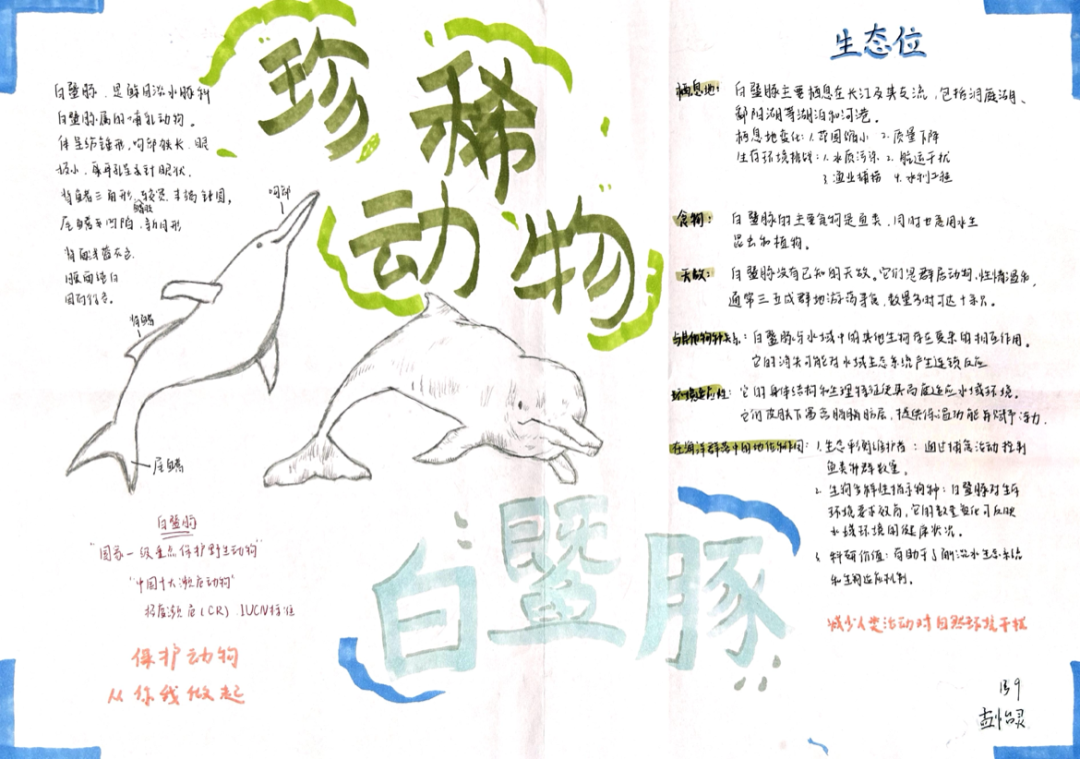 珍稀
动物
白暨豚,是鲸目淡水豚科
白暨豚属的哺乳动物。
体呈纺锤形,吻部狭长,眼
极小,耳孔呈针眼状。
背鳍三角形,
鳍肢较宽,末端钝圆,
尾鳍呈凹陷,新月形
背面浅蓝灰色
腹面洁白
吻部
背鳍
尾鳍
白暨豚
白暨豚
“国家一级重点保护野生动物”
“中国十大濒危动物”
极度濒危(CR) IUCN标准
保护动物
从你我做起
生态位
栖息地: 白暨豚主要栖息在长江及其支流,包括洞庭湖、
鄱阳湖等湖泊和河港。
栖息地变化: 1. 范围缩小 2. 质量下降
生存环境挑战: 1. 水质污染 2. 航运干扰
3. 渔业捕捞 4. 水利工程
食物: 白暨豚的主要食物是鱼类,同时也食用水生
昆虫和植物。
天敌: 白暨豚没有已知的天敌。它们是群居动物,性情温和,
通常三五成群地游荡寻食,数量多时可达十来只。
与其他物种关系: 白暨豚与水域中的其他生物存在复杂的相互作用。
它的消失可能对水域生态系统产生连锁反应
环境适应性: 它的身体结构和生理特征使其高度适应水域环境。
它们皮肤下富含脂肪层,提供保温功能并赋予浮力。
在海洋群落中的地位和作用: 1. 生态平衡维护者: 通过捕食活动控制
鱼类种群数量。
2. 生物多样性指示物种: 白暨豚对生存
环境要求较高,它的数量变化可反映
水域环境的健康状况。
3. 科研价值: 有助于了解淡水生态系统
和生物适应机制。
减少人类活动对自然环境干扰
139